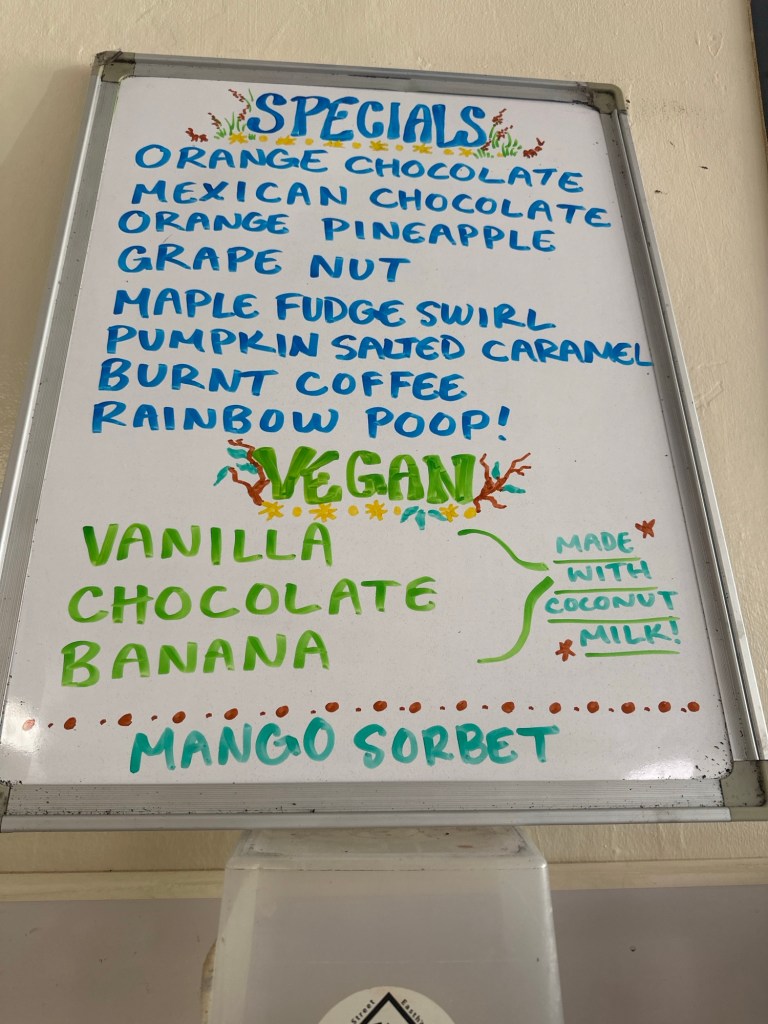 SPECIALS
ORANGE CHOCOLATE
MEXICAN CHOCOLATE
ORANGE PINEAPPLE
GRAPE NUT
MAPLE FUDGE SWIRL
PUMPKIN SALTED CARAMEL
BURNT COFFEE
RAINBOW POOP!
VEGAN
VANILLA
CHOCOLATE
BANANA
MADE
WITH
COCONUT
MILK!
MANGO SORBET
Street